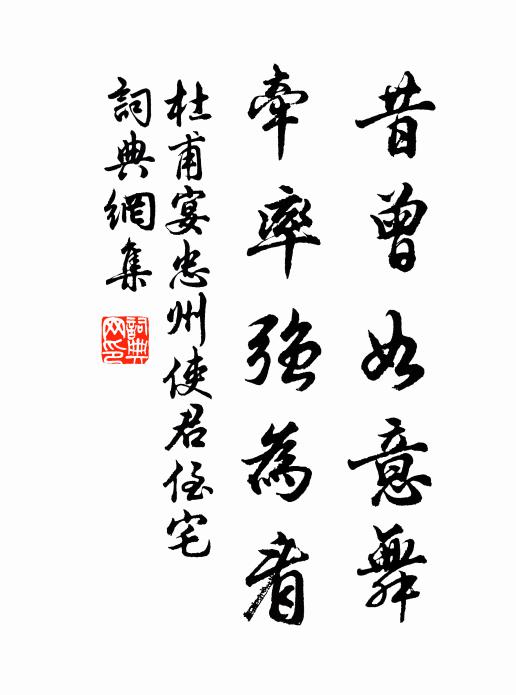 昔曾如意舞
牽率強為看
杜甫宴忠州使君侄宅
詞典網集
詞典
网印